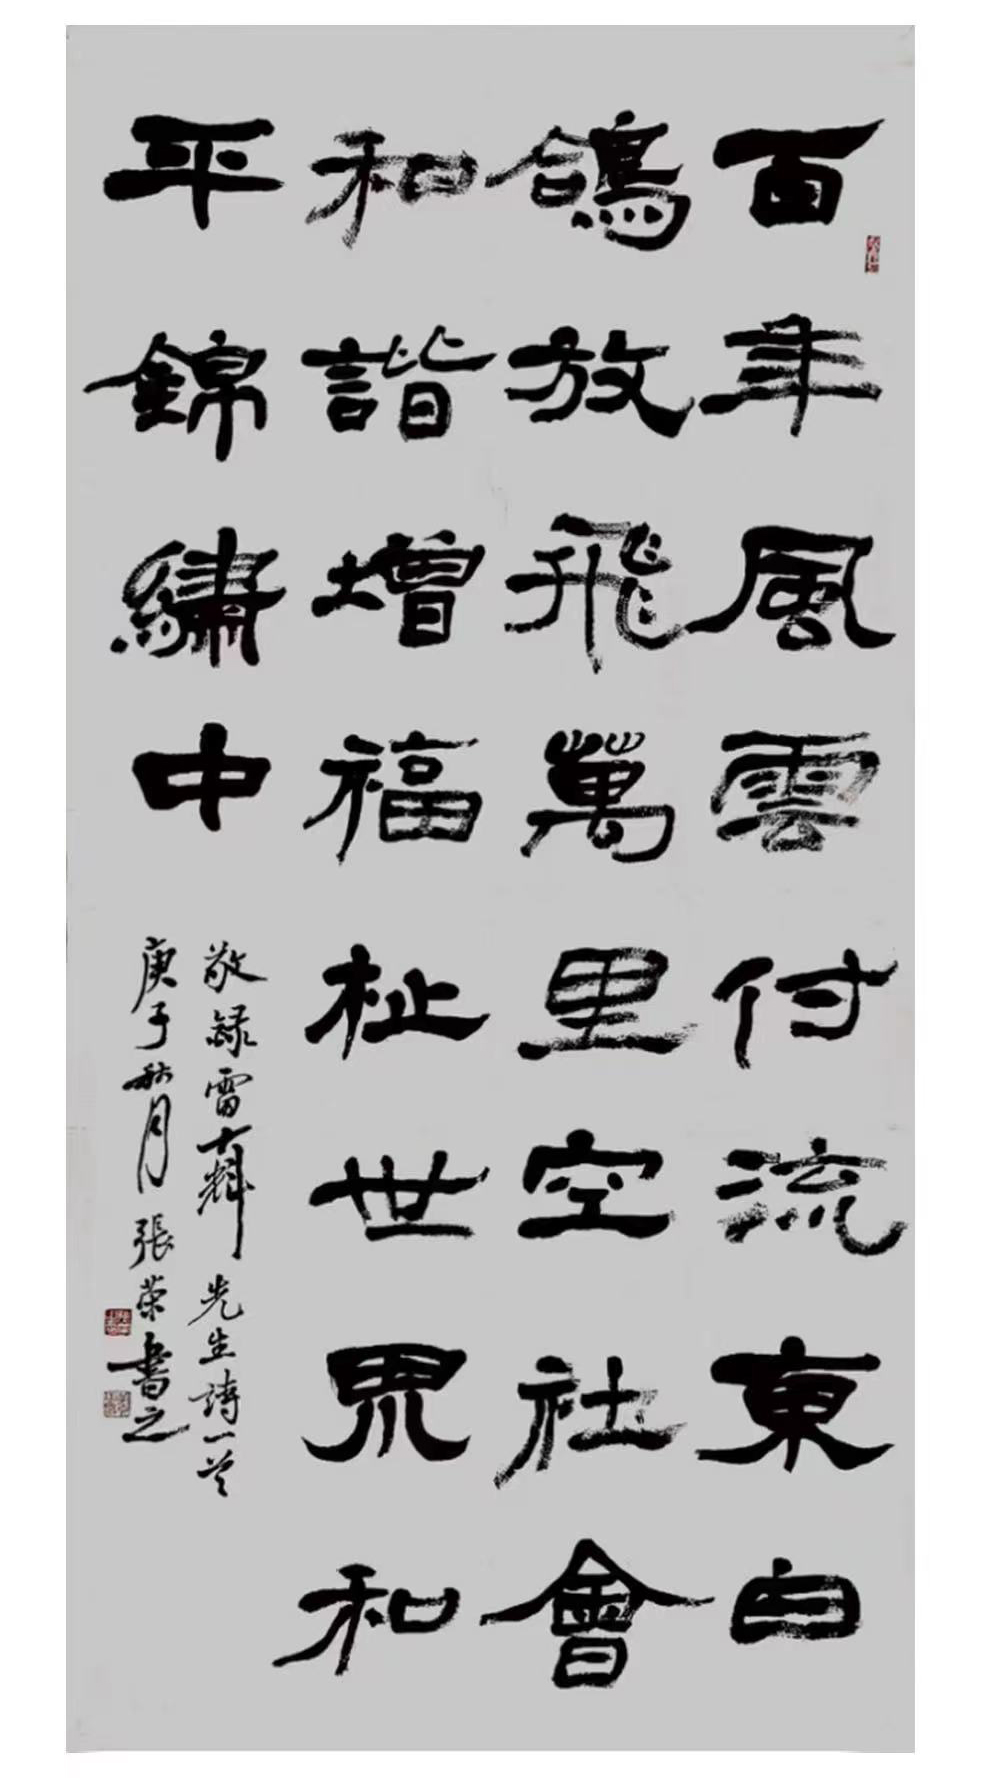 百年風雲付流東白
鴿放飛萬里空社會
和諧增福祉世界和
平錦繡中
敬錄雷士輝先生詩一首
庚子秋月張榮書之